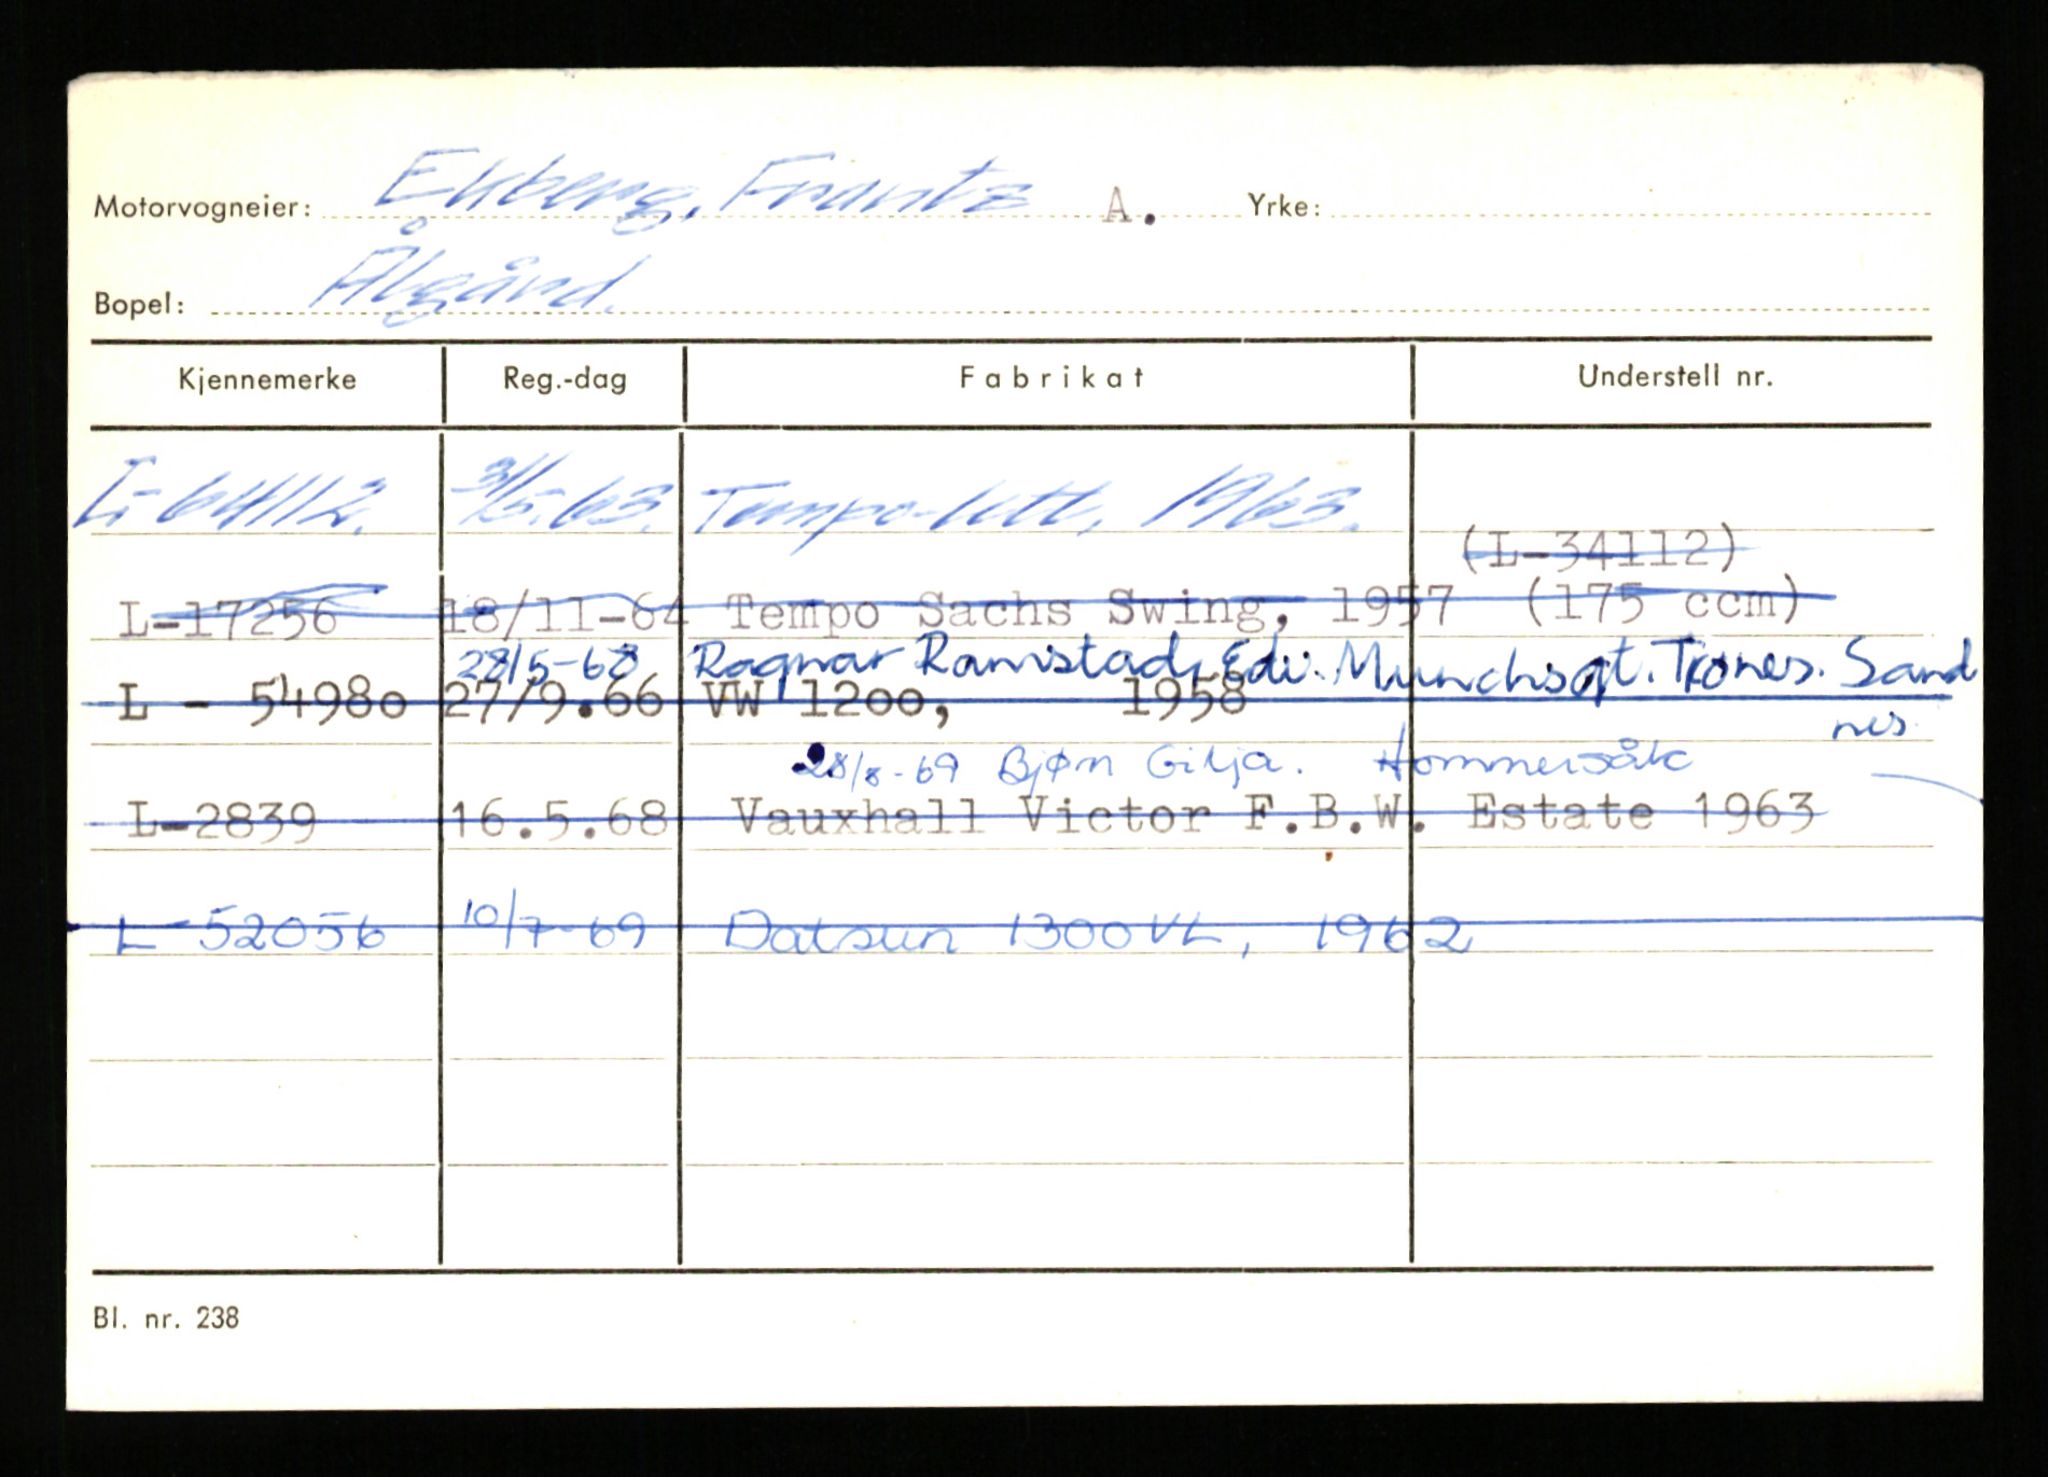 Motorvogneier: Ekberg, Frantz A. Yrke:
Bopel: Ålgård.
Kjennemerke Reg.-dag Fabrikat Understell nr.
L-64112. 3/5.63. Tempo-lett, 1963.
(L-34112)
L-17256 18/11-64 Tempo Sachs Swing, 1957 (175 ccm)
28/5-68 Ragnar Ramstad, Edv. Munchsgt. Trones. Sand
L - 54980 27/9.66 VW 1200, 1958
nes
28/8-69 Bjørn Gilja. Hommersåk
L-2839 16.5.68 Vauxhall Victor F.B.W. Estate 1963
L-52056 10/7-69 Datsun 1300VL, 1962
Bl. nr. 238